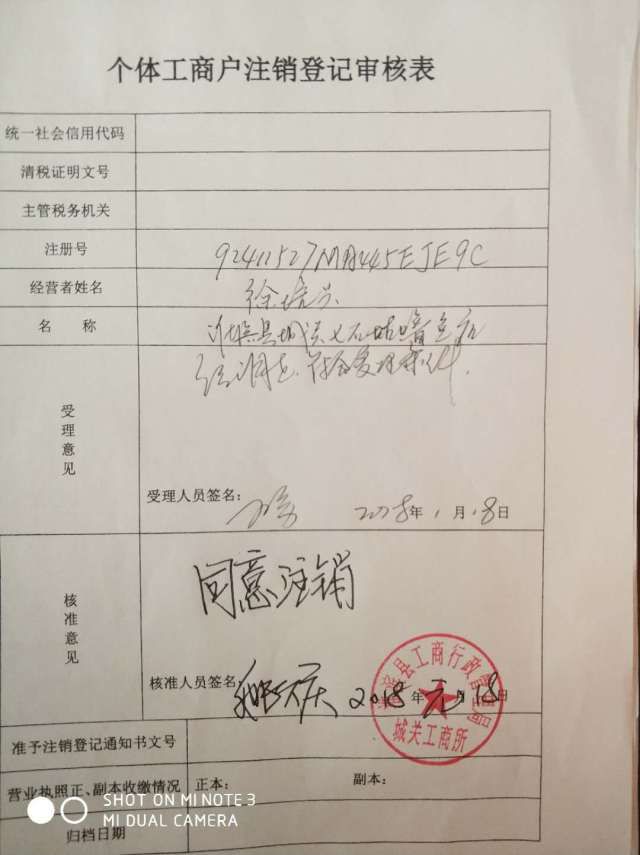 个体工商户注销登记审核表
统一社会信用代码
清税证明文号
主管税务机关
注册号 92411527MA445EJE9C
经营者姓名 徐
名 称 县城关七石咕噜鱼店
受理意见 经调查，符合受理条件.
受理人员签名： 2018年1月18日
核准意见 同意注销
核准人员签名 2018年元月18日
县工商行政管理局
城关工商所
准予注销登记通知书文号
营业执照正、副本收缴情况 正本： 副本：
归档日期
SHOT ON MI NOTE 3
MI DUAL CAMERA